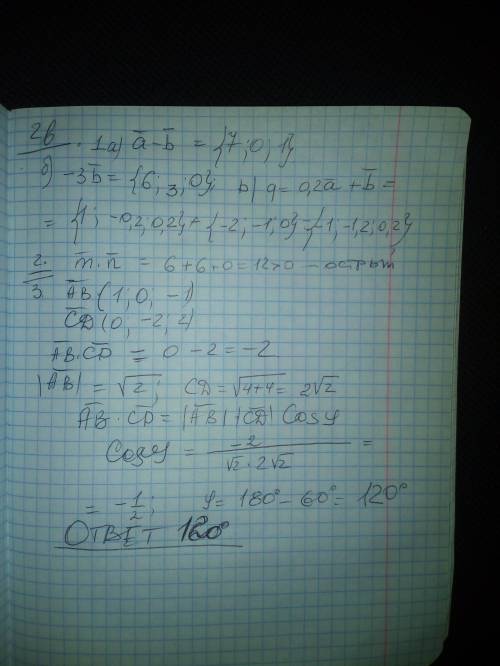 2в. 1а) a̅-b̅ = {7; 0; 1}
б) -3b̅ = {6; 3; 0}; в) q = 0,2a̅ + b̅ =
= {1; -0,2; 0,2} + {-2; -1; 0} = {-1; -1,2; 0,2}
2. m̅·n̅ = 6+6+0=12>0 - острый
3. A̅B̅ (1; 0; -1)
C̅D̅ (0; -2; 2)
A̅B̅·C̅D̅ = 0 - 2 = -2
|A̅B̅| = √2; CD = √4+4 = 2√2
A̅B̅ · C̅D̅ = |A̅B̅| |C̅D̅| Cosφ
Cosφ = -2 / √2 · 2√2 =
= -1/2; φ = 180° - 60° = 120°
ОТВЕТ 120°